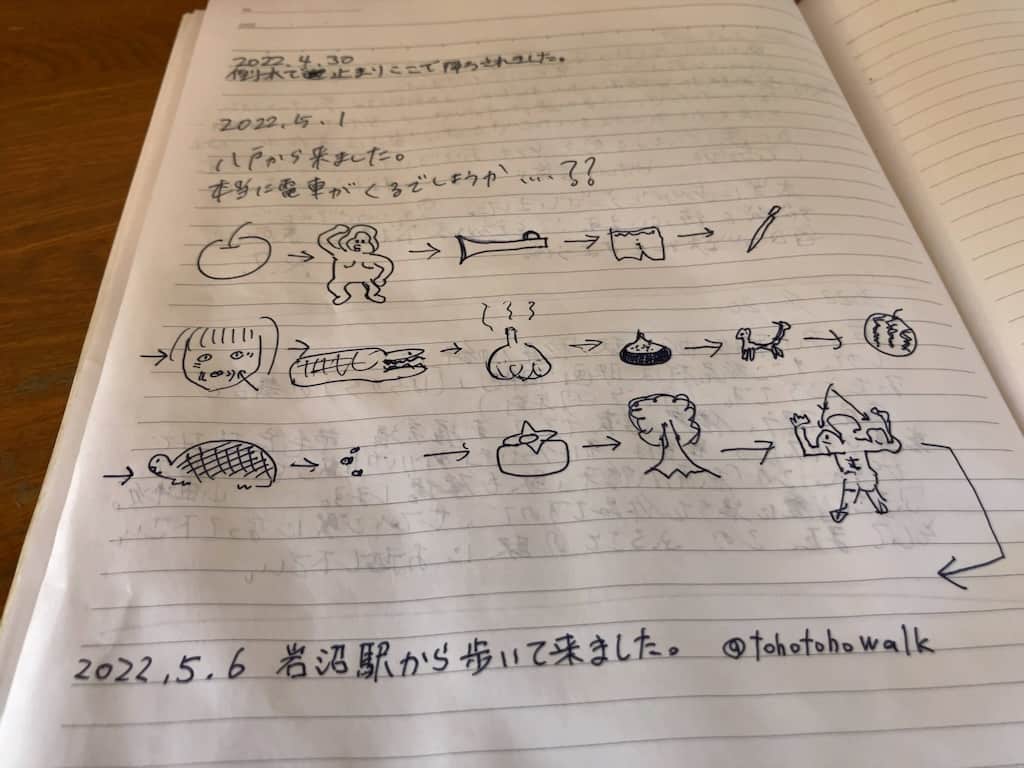 2022.4.30
倒木で止まりここで降ろされました。
2022.5.1
八戸から来ました。
本当に電車がくるでしょうか…??
2022.5.6 岩沼駅から歩いて来ました。 @tohotohowalk